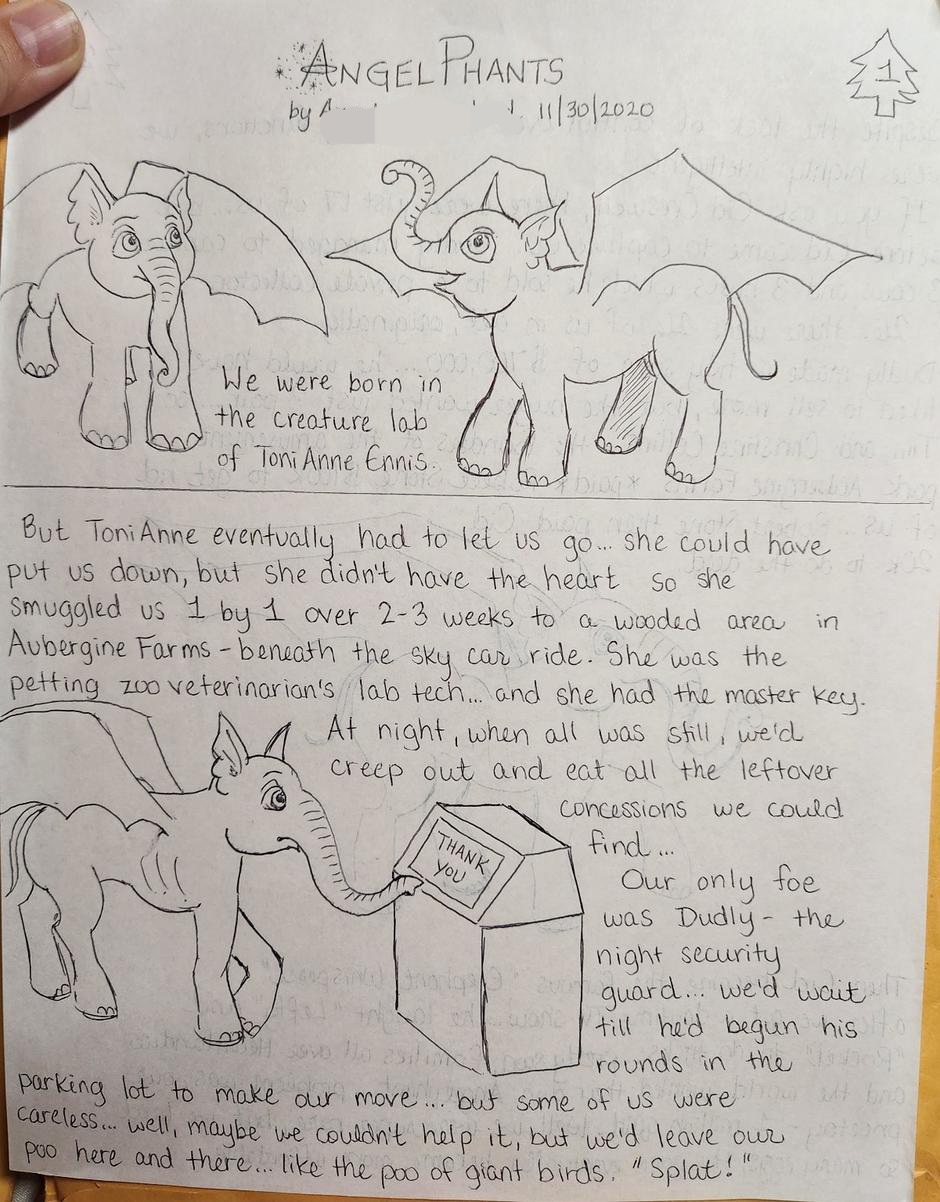 ANGELPHANTS
1
by 11/30/2020
We were born in
the creature lab
of ToniAnne Ennis.
But ToniAnne eventually had to let us go... she could have
put us down, but she didn't have the heart so she
smuggled us 1 by 1 over 2-3 weeks to a wooded area in
Aubergine Farms - beneath the sky car ride. She was the
petting zoo veterinarian's lab tech... and she had the master key.
At night, when all was still, we'd
creep out and eat all the leftover
concessions we could
find...
THANK
YOU
Our only foe
was Dudly - the
night security
guard... we'd wait
till he'd begun his
rounds in the
parking lot to make our move... but some of us were
careless... well, maybe we couldn't help it, but we'd leave our
poo here and there... like the poo of giant birds. "Splat!"